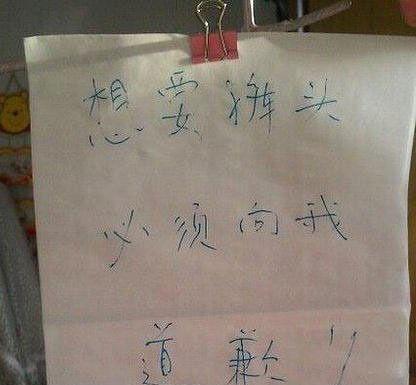 想要头
必须向我
道歉!!